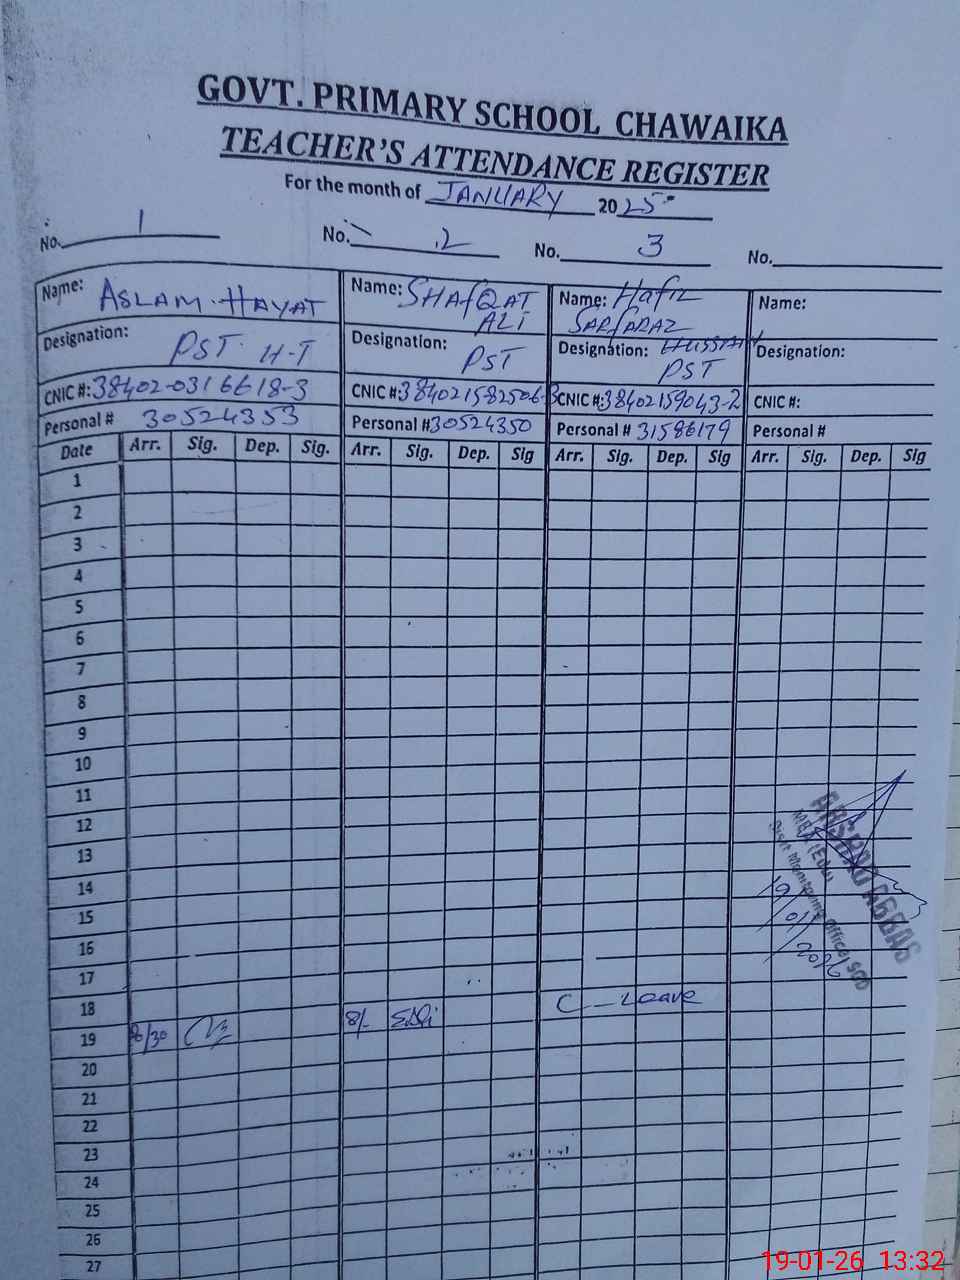 GOVT. PRIMARY SCHOOL CHAWAIKA
TEACHER'S ATTENDANCE REGISTER
For the month of JANUARY 2025
No. 1 No. 2 No. 3 No.
Name: ASLAM HAYAT Name: SHAFQAT ALI Name: Hafiz SARFARAZ HUSSAIN Name:
Designation: PST H-T Designation: PST Designation: PST Designation:
CNIC #: 38402-0316618-3 CNIC #: 384021582506-3 CNIC #: 38402159043-2 CNIC #:
Personal # 30524353 Personal # 30524350 Personal # 31586179 Personal #
Date Arr. Sig. Dep. Sig. Arr. Sig. Dep. Sig Arr. Sig. Dep. Sig Arr. Sig. Dep. Sig
1
2
3
4
5
6
7
8
9
10
11
12
13
14
15
16
17
18
19 8/30 8/- C - Leave
20
21
22
23
24
25
26
27
ARSHAD ABBAS
MEA (Edu)
19/01/2026
19-01-26 13:32